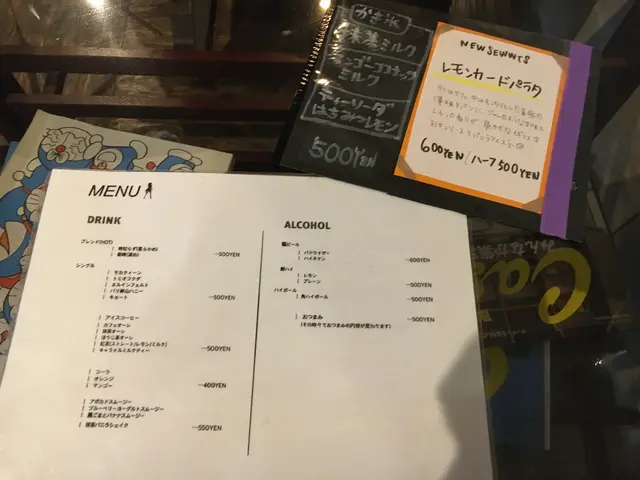 かき氷
抹茶ミルク
マンゴーココナッツ
ミルク
ティーソーダ
はちみつレモン
500YEN
NEWSEWNTS
レモンカードパラタ
600YEN/ハーフ500YEN
MENU
DRINK
ブレンド(HOT)
—500YEN
シングル
モカティーン
トミオフクダ
エルインフェルト
バリ神山ハニー
キョート —500YEN
アイスコーヒー
カフェオーレ
抹茶オーレ
ほうじ茶オーレ
紅茶(ストレート/レモン/ミルク)
キャラメルミルクティー —500YEN
コーラ
オレンジ
マンゴー —400YEN
アボカドスムージー
ブルーベリーヨーグルトスムージー
黒ごまとバナナスムージー
抹茶バニラシェイク —550YEN
ALCOHOL
瓶ビール
バドワイザー
ハイネケン —600YEN
酎ハイ
レモン
プレーン —500YEN
ハイボール
角ハイボール —500YEN
おつまみ —500YEN
(その時々でおつまみの内容が変わります)